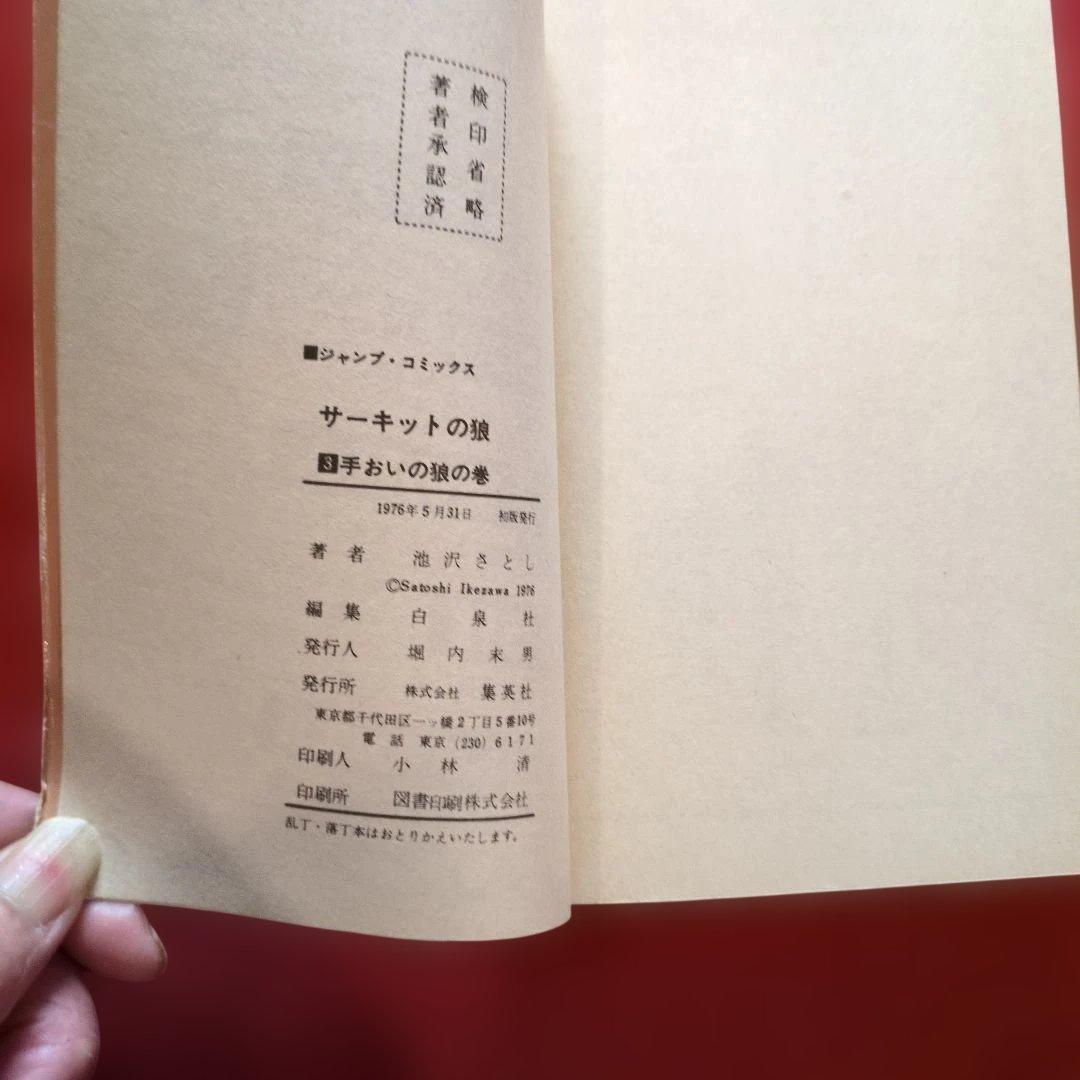 検印省略
著者承認済
■ジャンプ・コミックス
サーキットの狼
3手おいの狼の巻
1976年5月31日 初版発行
著者 池沢さとし
©Satoshi Ikezawa 1976
編集 白泉社
発行人 堀内末男
発行所 株式会社 集英社
東京都千代田区一ッ橋2丁目5番10号
電話 東京(230)6171
印刷人 小林清
印刷所 図書印刷株式会社
乱丁・落丁本はおとりかえいたします。